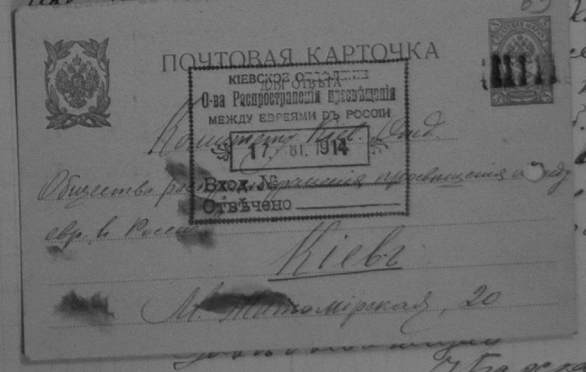 ПОЧТОВАЯ КАРТОЧКА
ДЛЯ ОТВѢТА
КІЕВСКОЕ ОТДѢЛЕНІЕ
О-ва Распространенія просвѣщенія
МЕЖДУ ЕВРЕЯМИ ВЪ РОССІИ
17. 1914
Вход. №
Отвѣчено
Комитету Кіев. Отд.
Общества распространенія просвѣщенія между
евр. в Россіи
Кіевъ
М. Житомірская, 20